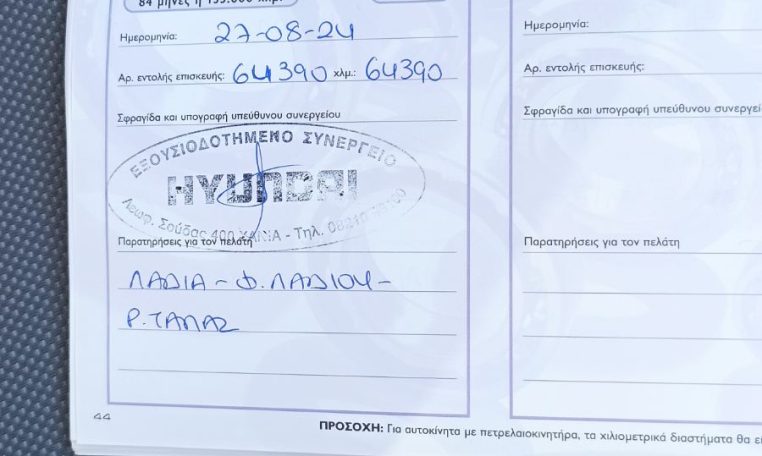 84 μήνες ή
Ημερομηνία: 27-08-24
Αρ. εντολής επισκευής: 64390 χλμ.: 64390
Σφραγίδα και υπογραφή υπεύθυνου συνεργείου
ΕΞΟΥΣΙΟΔΟΤΗΜΕΝΟ ΣΥΝΕΡΓΕΙΟ
HYUNDAI
Λεωφ. Σούδας ΧΑΝΙΑ - Τηλ.
Παρατηρήσεις για τον πελάτη
ΛΑΔΙΑ - Φ. ΛΑΔΙΟΥ -
Ρ. ΤΑΠΑΣ
44
Ημερομηνία:
Αρ. εντολής επισκευής:
Σφραγίδα και υπογραφή υπεύθυνου
Παρατηρήσεις για τον πελάτη
ΠΡΟΣΟΧΗ: Για αυτοκίνητα με πετρελαιοκινητήρα, τα χιλιομετρικά διαστήματα θα